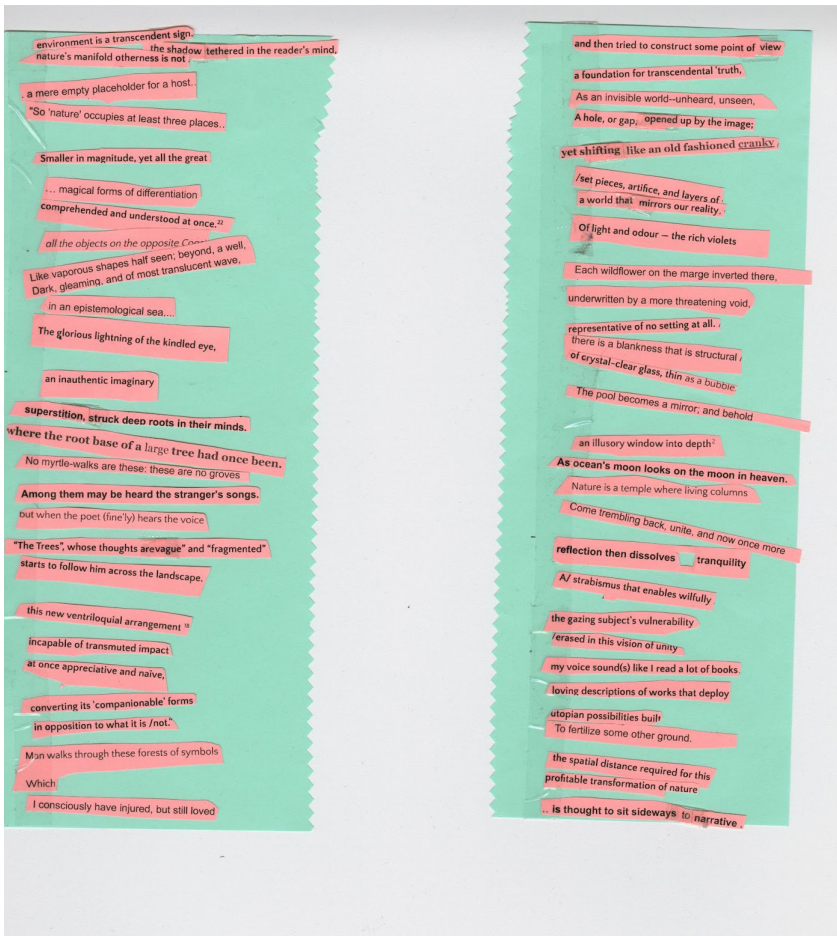 environment is a transcendent sign.
the shadow tethered in the reader's mind,
nature's manifold otherness is not
. a mere empty placeholder for a host..
"So 'nature' occupies at least three places..
Smaller in magnitude, yet all the great
... magical forms of differentiation
comprehended and understood at once.²²
all the objects on the opposite
Like vaporous shapes half seen; beyond, a well,
Dark, gleaming, and of most translucent wave,
in an epistemological sea....
The glorious lightning of the kindled eye,
an inauthentic imaginary
superstition, struck deep roots in their minds.
where the root base of a large tree had once been.
No myrtle-walks are these: these are no groves
Among them may be heard the stranger's songs.
but when the poet (fine'ly) hears the voice
"The Trees", whose thoughts arevague" and "fragmented"
starts to follow him across the landscape.
this new ventriloquial arrangement ¹⁸
incapable of transmuted impact
at once appreciative and naïve,
converting its 'companionable' forms
in opposition to what it is /not."
Man walks through these forests of symbols
Which
I consciously have injured, but still loved
and then tried to construct some point of view
a foundation for transcendental 'truth,
As an invisible world--unheard, unseen,
A hole, or gap, opened up by the image;
yet shifting like an old fashioned cranky
/set pieces, artifice, and layers of
a world that mirrors our reality.
Of light and odour – the rich violets
Each wildflower on the marge inverted there,
underwritten by a more threatening void,
representative of no setting at all. /
there is a blankness that is structural /
of crystal-clear glass, thin as a bubble
The pool becomes a mirror; and behold
an illusory window into depth²
As ocean's moon looks on the moon in heaven.
Nature is a temple where living columns
Come trembling back, unite, and now once more
reflection then dissolves tranquility
A/ strabismus that enables wilfully
the gazing subject's vulnerability
/erased in this vision of unity
my voice sound(s) like I read a lot of books.
loving descriptions of works that deploy
utopian possibilities built
To fertilize some other ground.
the spatial distance required for this
profitable transformation of nature
.. is thought to sit sideways to narrative .